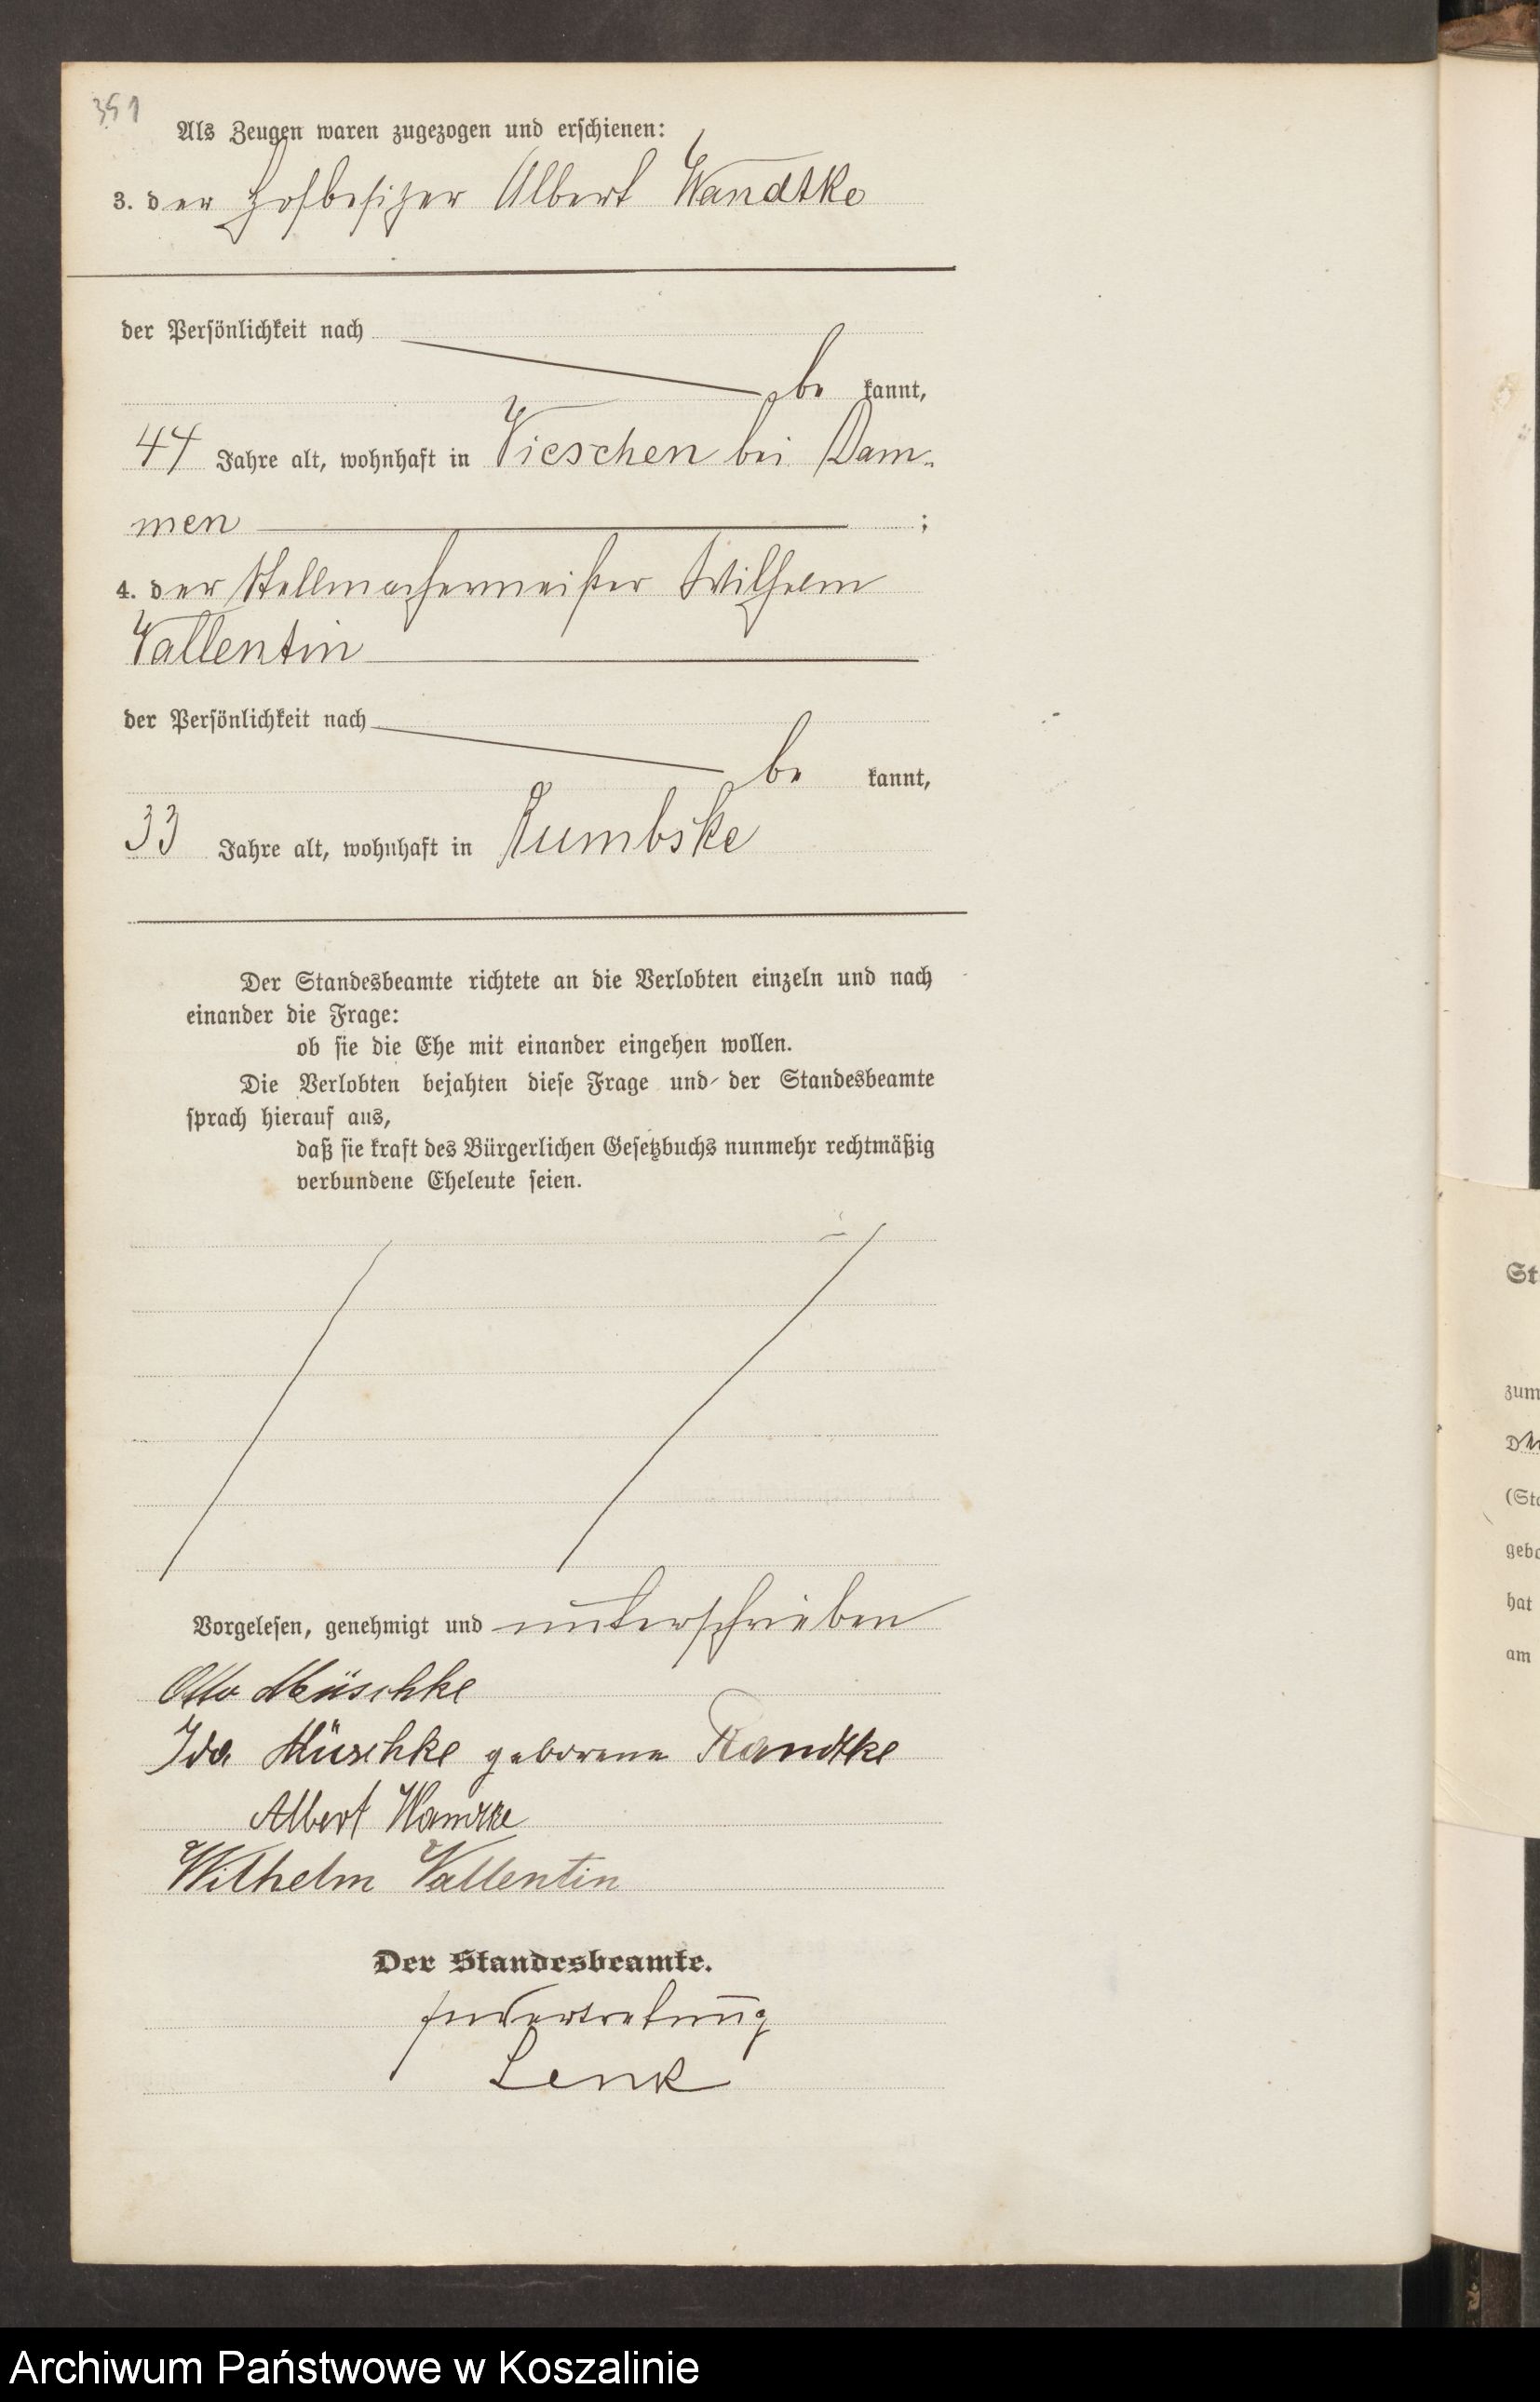 351
Als Zeugen waren zugezogen und erschienen:
3. der Hofbesitzer Albert Wandtke
der Persönlichkeit nach
be kannt,
44 Jahre alt, wohnhaft in Vieschen bei Dam-
men ;
4. der Stellmachermeister Wilhelm
Vallentin
der Persönlichkeit nach
be kannt,
33 Jahre alt, wohnhaft in Rumbske
Der Standesbeamte richtete an die Verlobten einzeln und nach
einander die Frage:
ob sie die Ehe mit einander eingehen wollen.
Die Verlobten bejahten diese Frage und der Standesbeamte
sprach hierauf aus,
daß sie kraft des Bürgerlichen Gesetzbuchs nunmehr rechtmäßig
verbundene Eheleute seien.
Vorgelesen, genehmigt und unterschrieben
Otto Müschke
Ida Müschke geborene Randtke
Albert Wandtke
Wilhelm Vallentin
Der Standesbeamte.
In Vertretung
Lenk
St
zum
(Sta
gebo
hat
am
Archiwum Państwowe w Koszalinie